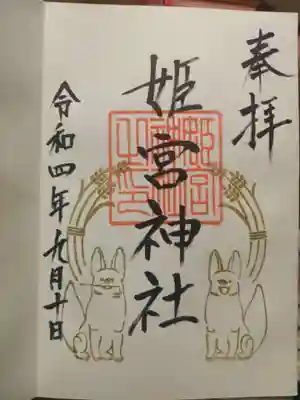 奉拝
姫宮神社
令和四年九月十日